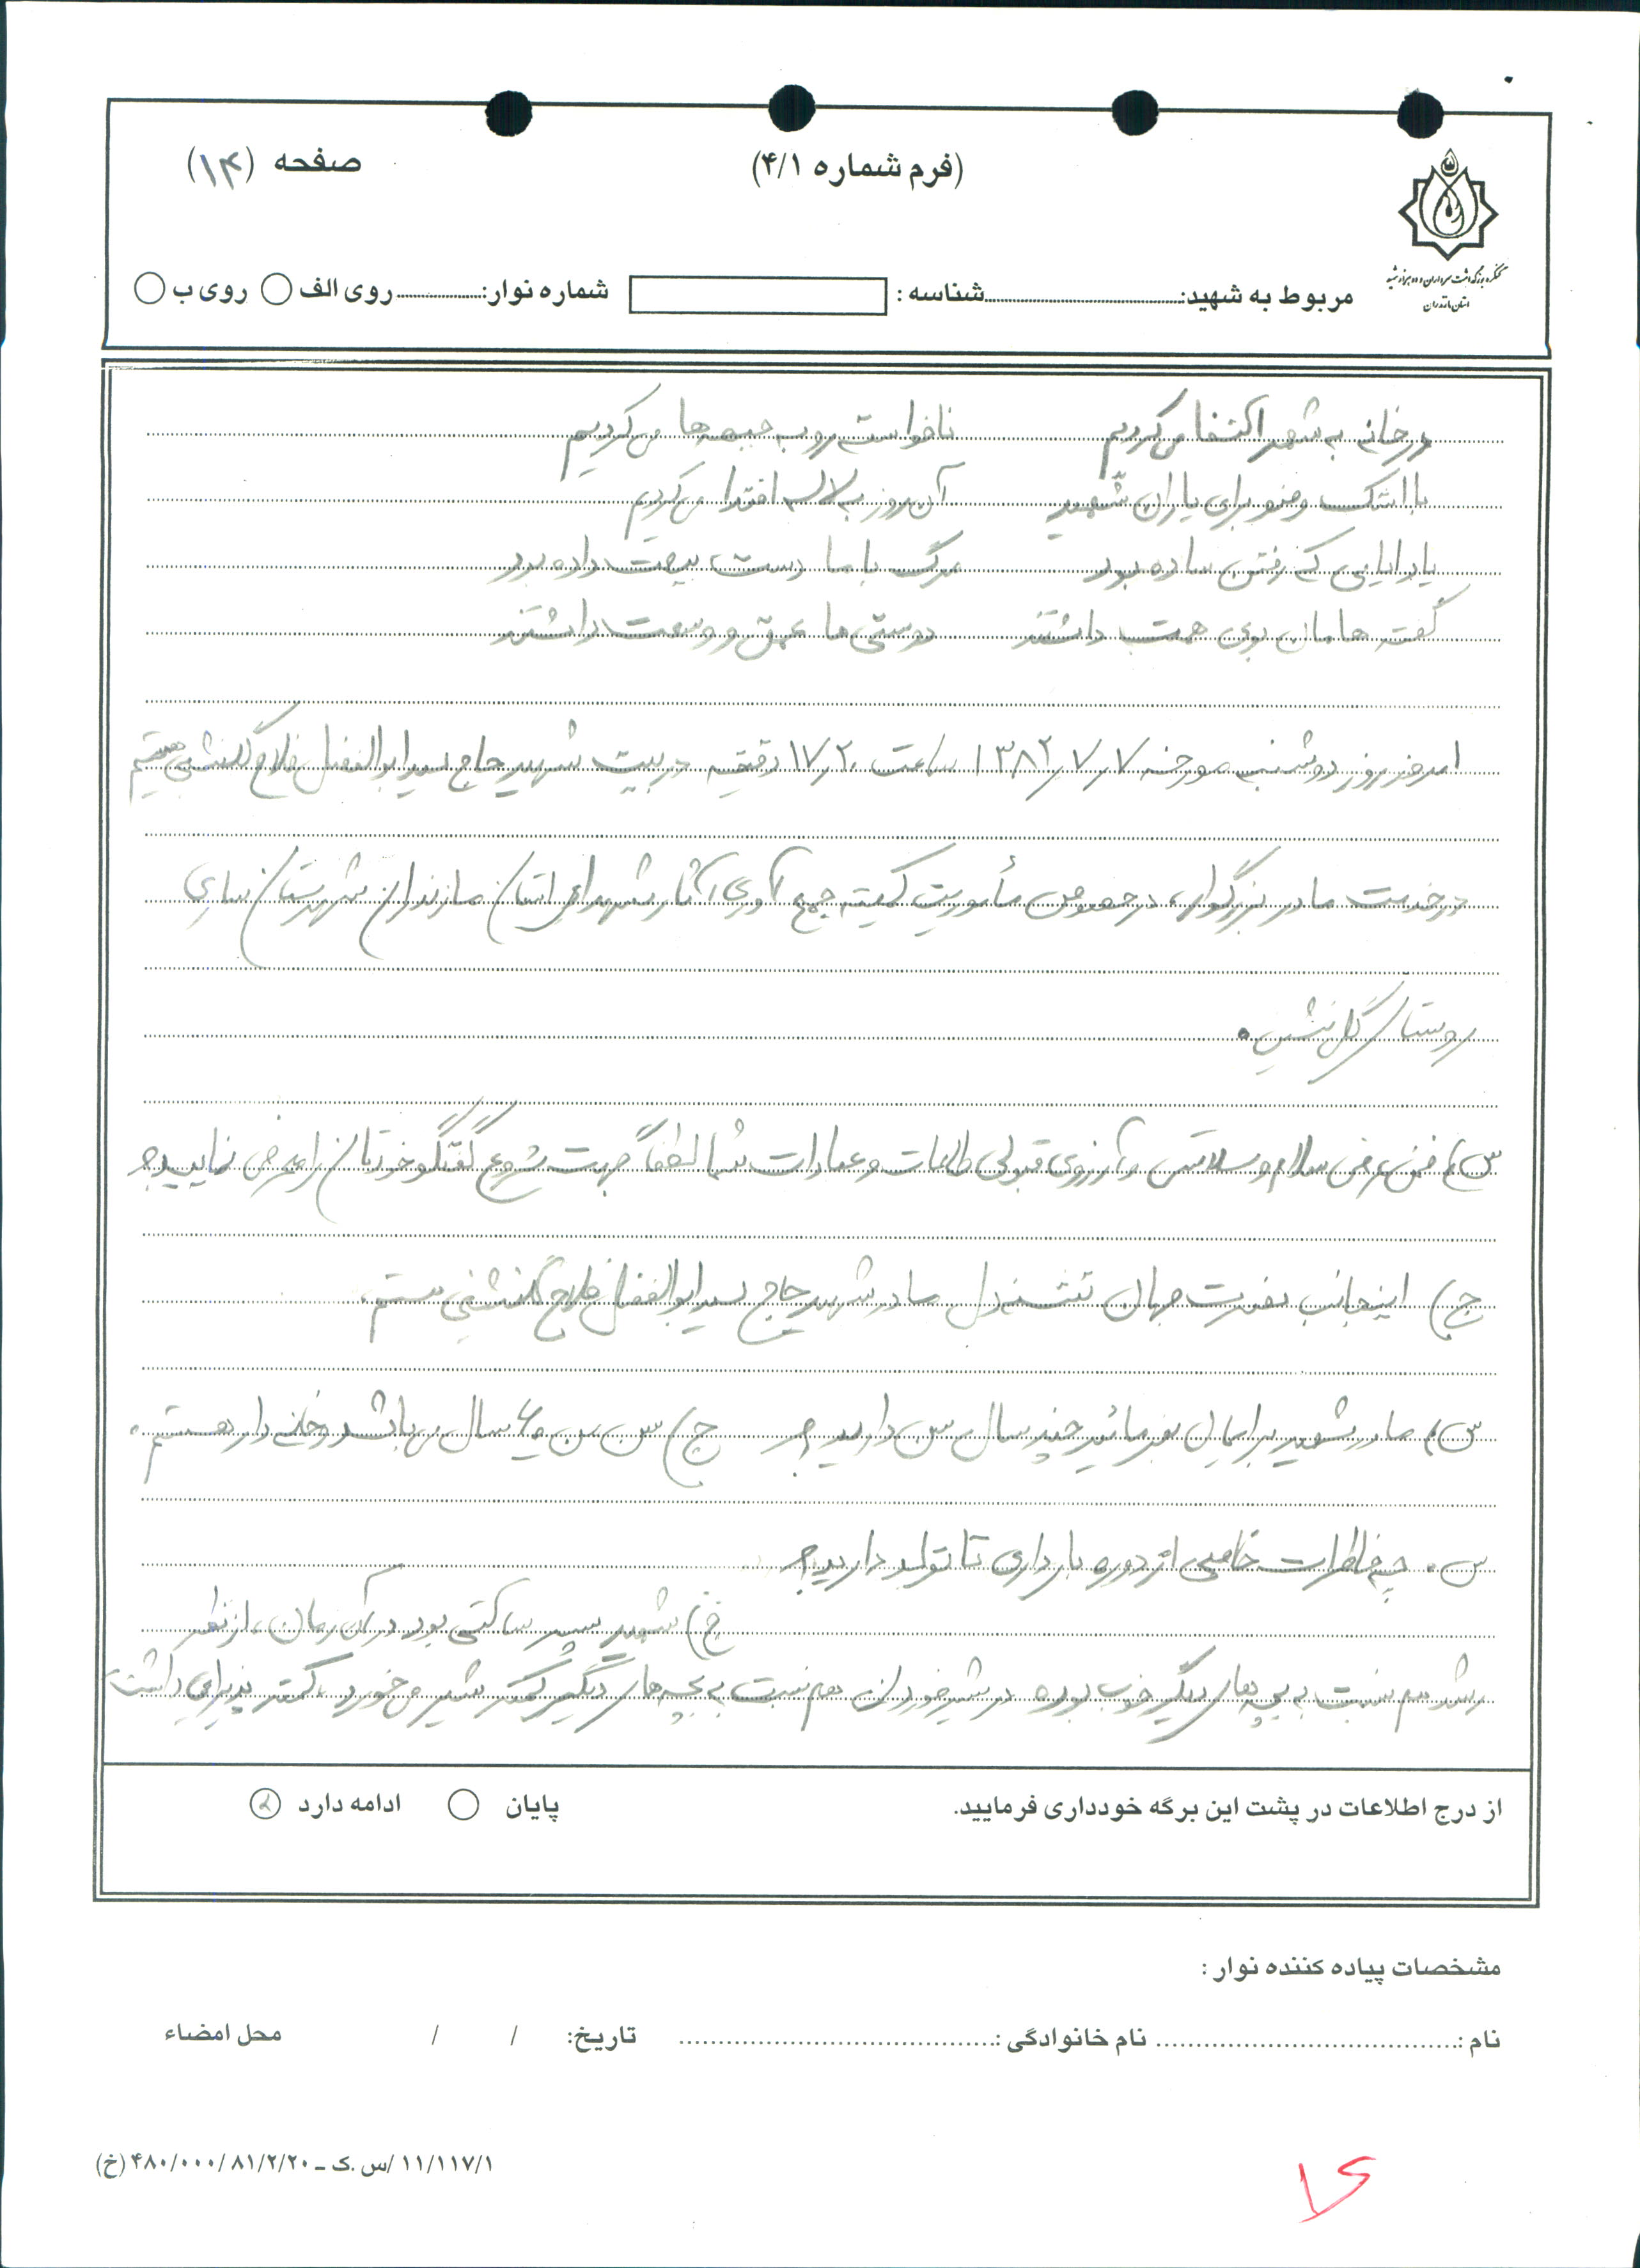 (فرم شماره ۴/۱)
صفحه (۱۴)
کنگره بزرگداشت سرداران و ده هزار شهید
استان مازندران
مربوط به شهید: شناسه: شماره نوار: روی الف روی ب
در خانه به شهد اکتفا می کردیم ناخواسته رو به جبهه ها می کردیم
با اشک وضو برای یاران شهید آن روز به لاله اقتدا می کردیم
یاد ایامی که رفتن ساده بود مرگ با ما دست بیعت داده بود
گفته هامان بوی همت داشتند دوستی ما عمق و وسعت داشتند
امروز روز دوشنبه مورخه ۱۳۸۲/۷/۷ ساعت ۱۷/۲۰ دقیقه در بیت شهید حاج سید ابوالفضل فلاح گلنشینی هستیم
در خدمت مادر بزرگوار، در خصوص مأموریت کمیته جمع آوری آثار شهدای استان مازندران شهرستان ساری
روستای گل نشین.
س) ضمن عرض سلام و سلامتی و آرزوی قبولی طاعات و عبادات شما لطفاً جهت شروع گفتگو خودتان را معرفی نمایید؟
ج) اینجانب نصرت جهان تشنه دل مادر شهید حاج سید ابوالفضل فلاح گلنشینی هستم.
س) مادر شهید برایمان بفرمائید چند سال سن دارید؟ ج) سن من ۶۰ سال می باشد و خانه دار هستم.
س. چه خاطرات خاصی از دوره بارداری تا تولد دارید؟
ج) شهید پسر ساکتی بود در آن زمان، از نظر
رشد هم نسبت به بچه های دیگر خوب بوده در شیر خوردن هم نسبت به بچه های دیگر کمتر شیر می خورد، کمتر پذیرایی داشت
از درج اطلاعات در پشت این برگه خودداری فرمایید.
پایان ادامه دارد
مشخصات پیاده کننده نوار:
نام: نام خانوادگی: تاریخ: / / محل امضاء
۱۱/۱۱۷/۱ /س.ک ــ ۴۸۰/۰۰۰/۸۱/۲/۲۰ (خ)